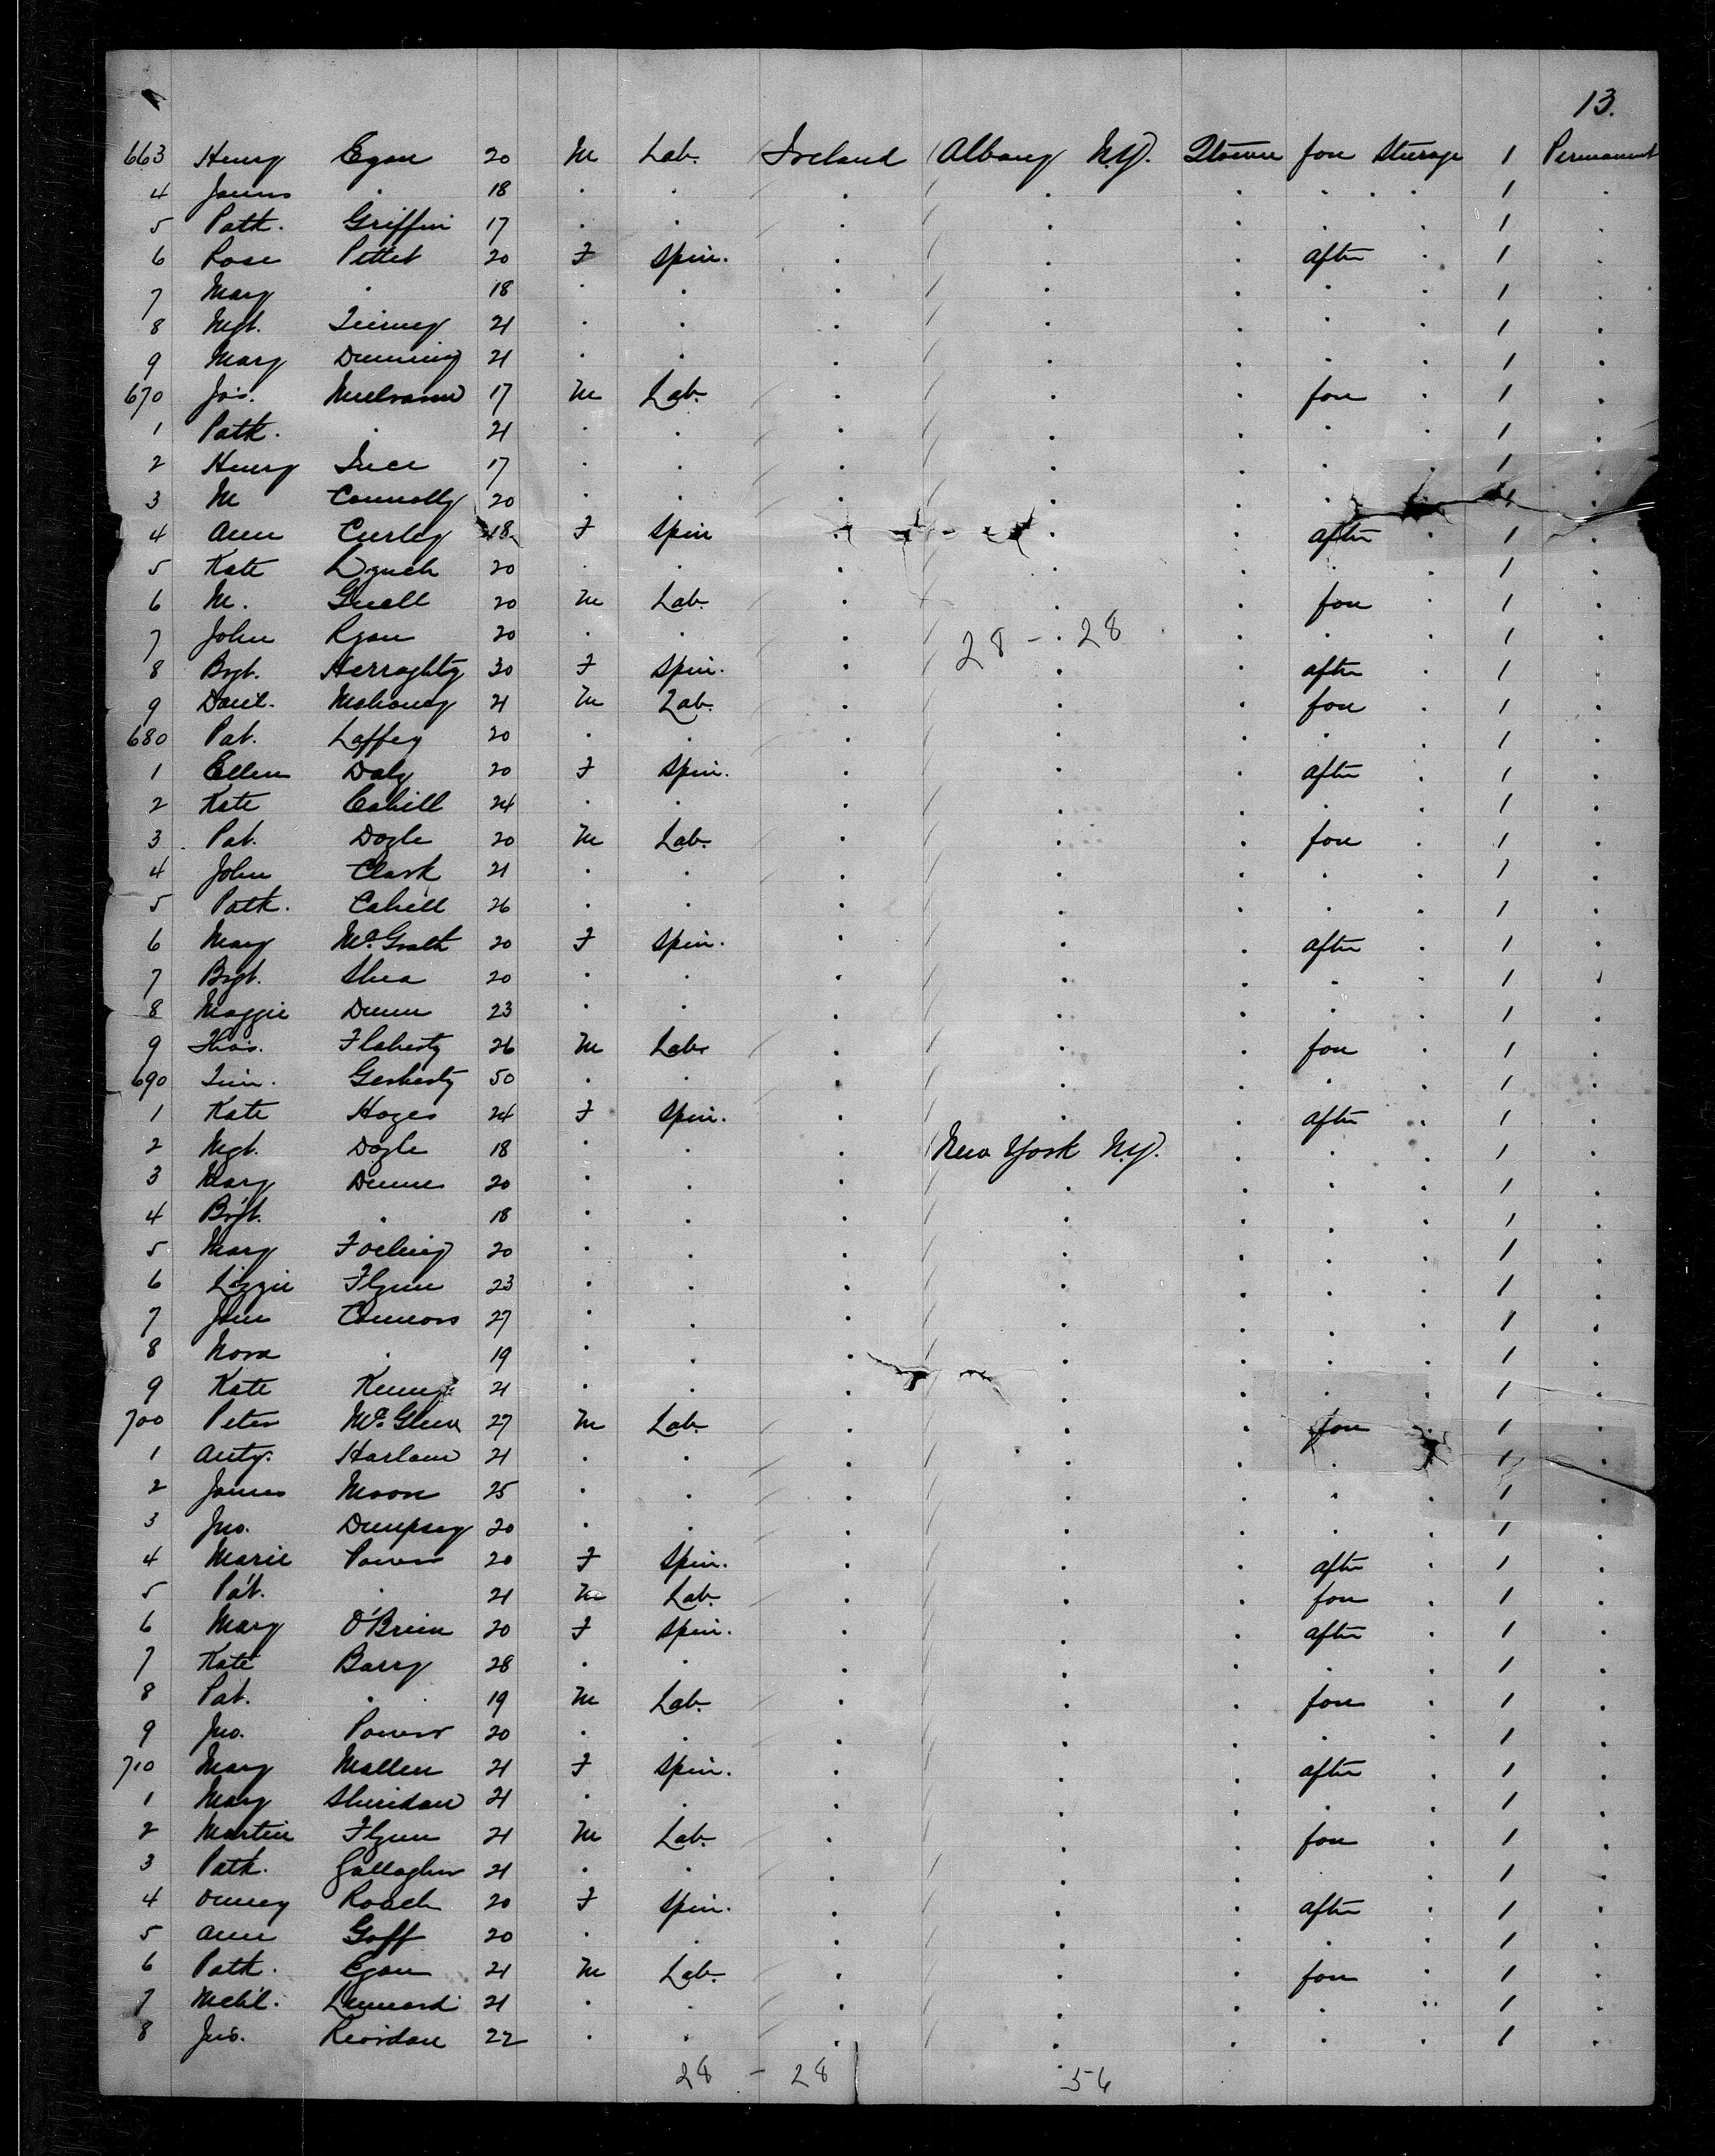 13.
663 Henry Egan 20 M Lab. Ireland Albany N.Y. Qtown fore Steerage 1 Permanent
4 James . 18 . . . . . . . . 1 .
5 Patk. Griffin 17 . . . . . . . 1 .
6 Rose Pettet 20 F Spin. . . . after . 1 .
7 Mary . 18 . . . . . . . 1 .
8 Mgt. Tierney 21 . . . . . . . 1 .
9 Mary Dunning 21 . . . . . . . 1 .
670 Jas. 17 M Lab. . . . fore . 1 .
1 Patk. . 21 . . . . . . . 1 .
2 Henry 17 . . . . . . . 1 .
3 M Connolly 20 . . . . . . . 1 .
4 Ann Curley 18 F Spin . . . after . 1 .
5 Kate Lynch 20 . . . . . . . 1 .
6 M. 20 M Lab. . . . fore . 1 .
7 John Ryan 20 . . . 28 - 28 . . . . 1 .
8 Bgt. Herraghty 30 F Spin. . . . after . 1 .
9 Danl. Mahoney 21 M Lab. . . . fore . 1 .
680 Pat. Laffey 20 . . . . . . . 1 .
1 Ellen Daly 20 F Spin. . . . after . 1 .
2 Kate Cahill 24 . . . . . . . 1 .
3 Pat. Doyle 20 M Lab. . . . fore . 1 .
4 John Clark 21 . . . . . . . 1 .
5 Patk. Cahill 26 . . . . . . . 1 .
6 Mary McGrath 20 F Spin. . . . after . 1 .
7 Bgt. Shea 20 . . . . . . . 1 .
8 Maggie Dunn 23 . . . . . . . 1 .
9 Thos. Flaherty 26 M Lab. . . . fore . 1 .
690 Tim. Gerherty 50 . . . . . . . 1 .
1 Kate Hayes 24 F Spin. . . . after . 1 .
2 Mgt. Doyle 18 . . . New York N.Y. . . . 1 .
3 Mary Dunne 20 . . . . . . . 1 .
4 Bgt. . 18 . . . . . . . 1 .
5 Mary 20 . . . . . . . 1 .
6 Lizzie Flynn 23 . . . . . . . 1 .
7 Connors 27 . . . . . . . 1 .
8 Nora . 19 . . . . . . . 1 .
9 Kate Kenny 21 . . . . . . . 1 .
700 Peter 27 M Lab. . . . fore . 1 .
1 Anty. Harlow 21 . . . . . . . 1 .
2 James Moore 25 . . . . . . . 1 .
3 Jno. Dempsey 20 . . . . . . . 1 .
4 Marie Power 20 F Spin. . . . after . 1 .
5 Pat. . 21 M Lab. . . . fore . 1 .
6 Mary O'Brien 20 F Spin. . . . after . 1 .
7 Kate Barry 28 . . . . . . . 1 .
8 Pat. . 19 M Lab. . . . fore . 1 .
9 Jno. Power 20 . . . . . . . 1 .
710 Mary Mallen 21 F Spin. . . . after . 1 .
1 Mary Sheridan 21 . . . . . . . 1 .
2 Martin Flynn 21 M Lab. . . . fore . 1 .
3 Patk. Gallagher 21 . . . . . . . 1 .
4 Roach 20 F Spin. . . . after . 1 .
5 Ann Goff 20 . . . . . . . 1 .
6 Patk. Egan 21 M Lab. . . . fore . 1 .
7 Michl. Lennard 21 . . . . . . . 1 .
8 Jno. Riordan 22 . . . . . . . 1 .
28 - 28 56